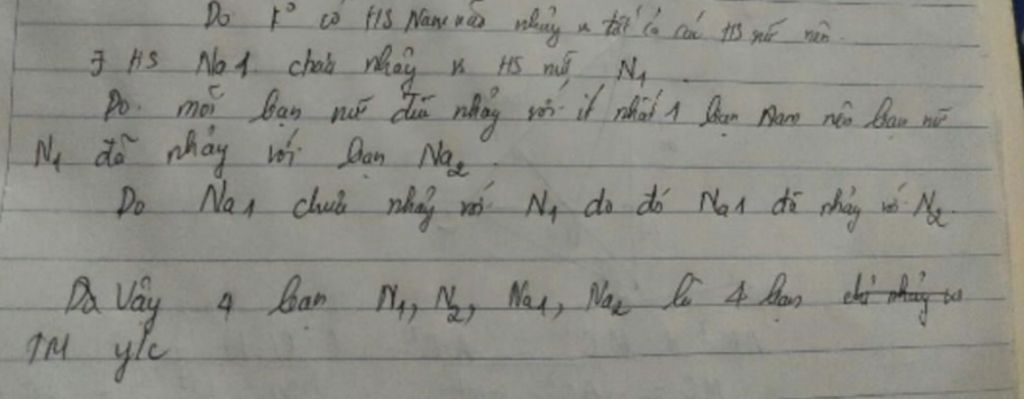 Do k° có HS Nam nào nhảy vs tất cả các HS nữ nên
∃ HS Na1 chưa nhảy vs HS nữ N1
Do mỗi bạn nữ đều nhảy với ít nhất 1 bạn Nam nên bạn nữ
N1 đã nhảy với bạn Na2
Do Na1 chưa nhảy với N1 do đó Na1 đã nhảy với N2.
Vậy 4 bạn N1, N2, Na1, Na2 là 4 bạn
TM y/c